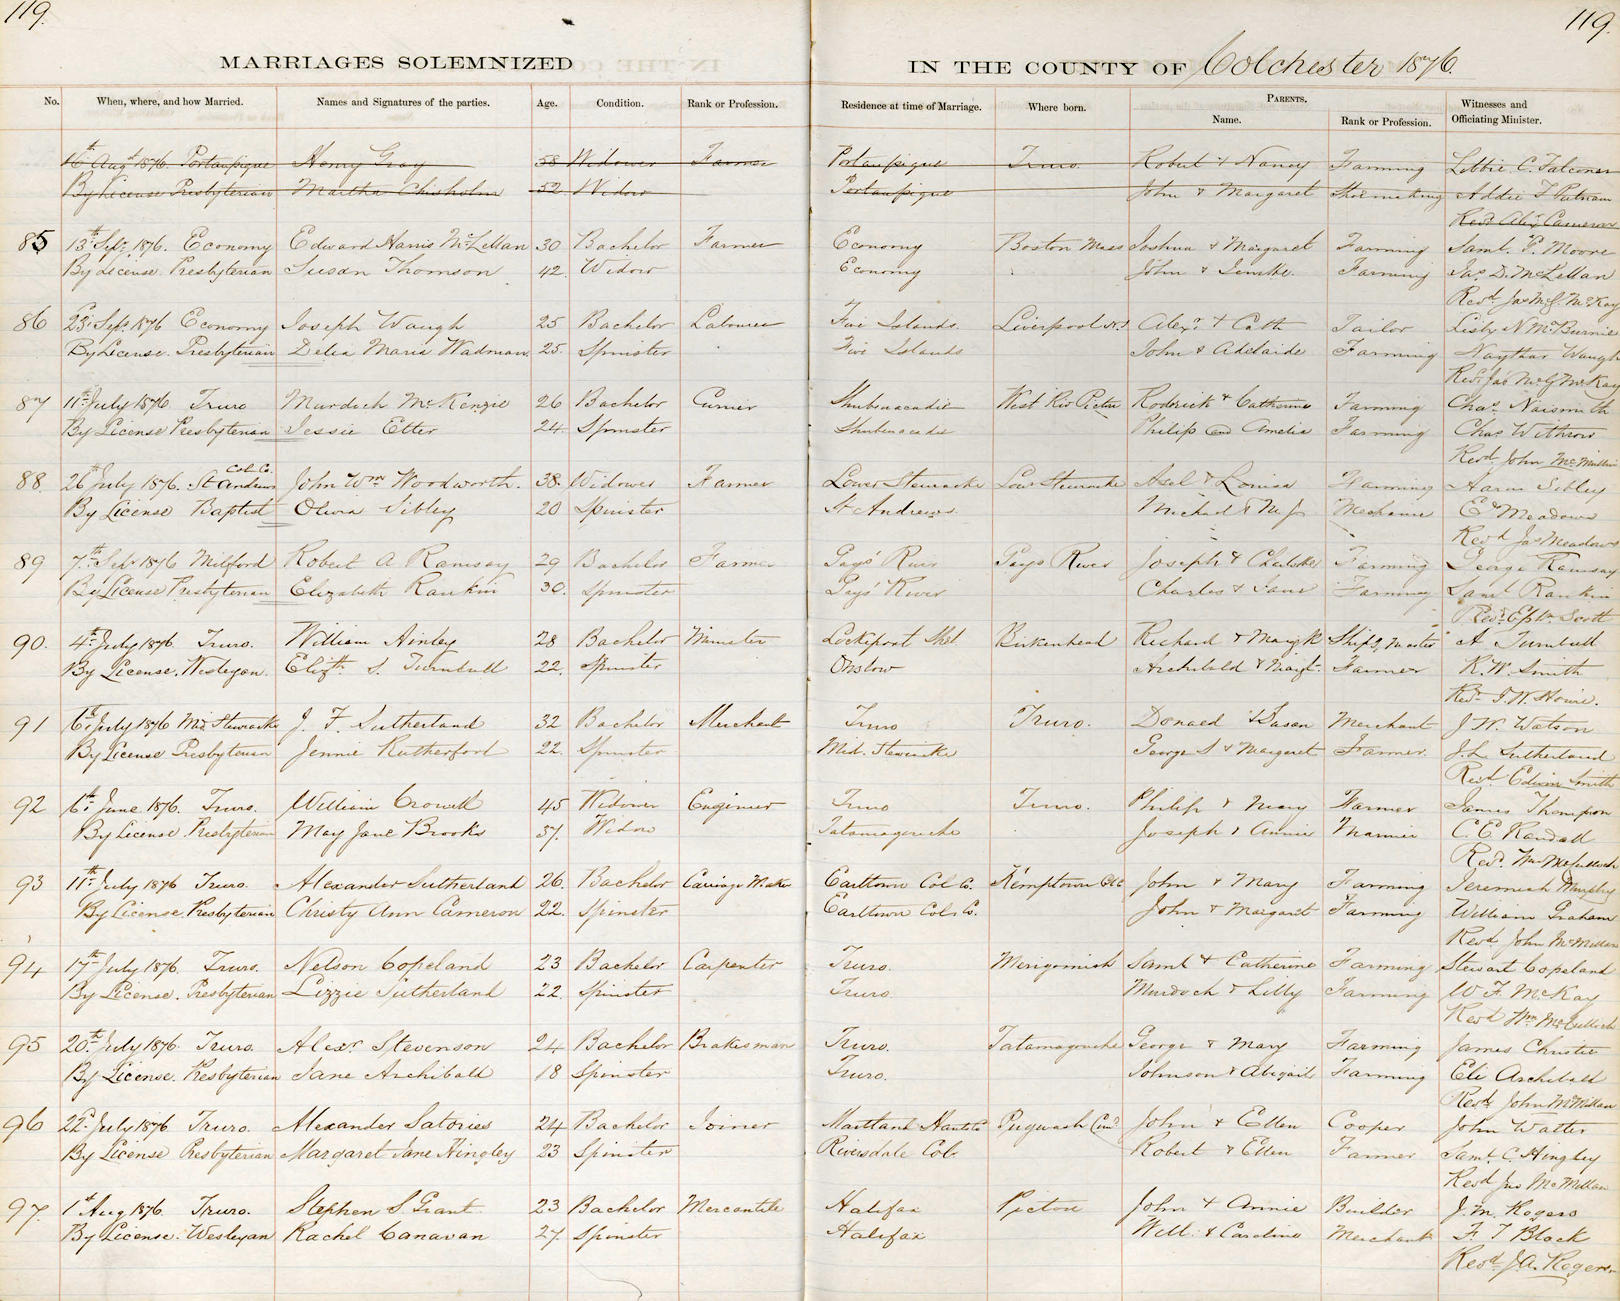 119. 119.
MARRIAGES SOLEMNIZED IN THE COUNTY OF Colchester 1876.
No. When, where, and how Married. Names and Signatures of the parties. Age. Condition. Rank or Profession. Residence at time of Marriage. Where born. PARENTS. Witnesses and
Name. Rank or Profession. Officiating Minister.
16th Augt 1876. Portaupique Henry Gray 58 Widower Farmer Portaupique Truro. Robert & Nancy Farming Libbie C. Falconer
By License Presbyterian Martha Chisholm 52. Widow Portaupique John & Margaret Shoemaking Addie F Putnam
Revd Alexr Cameron
85 13th Sept. 1876. Economy Edward Harris McLellan 30 Bachelor Farmer Economy Boston Mass Joshua & Margaret Farming Saml. P. Moore
By License Presbyterian Susan Thomson 42. Widow Economy John & Farming Jas D. McLellan
Revd. Jas McG. McKay
86 23d Sept. 1876 Economy Joseph Waugh 25 Bachelor Labourer Five Islands. Liverpool N.S Alexr. & Cath Tailor N McBurnie
By License. Presbyterian Delia Maria Wadman. 25. Spinster Five Islands John & Adelaide Farming Waugh
Revd. Jas McG McKay
87 11th July 1876 Truro Murdoch McKenzie 26 Bachelor Currier Shubenacadie West Riv Pictou Roderick & Catherine Farming Chas. Naismith
By License Presbyterian Jessie Etter 24. Spinster Shubenacadie Philip and Amelia Farming Chas Withrow
Revd. John McMillan
88. 26th July 1876. St Andrews Col. Co. John Wm Woodworth. 38. Widower Farmer Lower Stewiacke Low Stewiacke Asel & Louisa Farming Aaron Sibley
By License Baptist Olivia Sibley 20 Spinster St Andrews. Michael & M J Mechanic Ed Meadows
Revd Jas Meadows
89 7th Sept 1876 Milford Robert A Ramsay 29 Bachelor Farmer Gays River Gays River Joseph & Charlotte Farming George Ramsay
By License Presbyterian Elizabeth Rankin 30. Spinster Gays River Charles & Jane Farming Saml Rankin
Revd. Scott
90. 4th July 1876. Truro. William Ainley 28 Bachelor Minister Lockport Shel. Birkenhead Richard & Mary Ship Master A Turnbull
By License. Wesleyan. Elizth. S. Turnbull 22. Spinster Onslow Archibald & Margt. Farmer R. W. Smith
Revd. J. W. Howie.
91 6th July 1876 Mid Stewiacke J. F. Sutherland 32 Bachelor Merchant Truro Truro. Donald & Susan Merchant J W. Watson
By License Presbyterian Jennie Rutherford 22. Spinster Mid. Stewiacke George S & Margaret Farmer. J. L. Sutherland
Revd Edwin Smith
92 6th June 1876. Truro. William Crowell 45 Widower Engineer Truro Truro. Philip & Mary Farmer James Thompson
By License. Presbyterian May Jane Brooks 37. Widow Tatamagouche Joseph & Annie C. E. Randall
Revd. Wm McCulloch
93 11th July 1876 Truro. Alexander Sutherland 26. Bachelor Carriage Maker Earltown Col Co. Kemptown Col Co John & Mary Farming Jeremiah Murphy
By License. Presbyterian Christy Ann Cameron 22. Spinster Earltown Col. Co. John & Margaret Farming William Graham
Revd. John McMillan
94 17th July 1876. Truro. Nelson Copeland 23 Bachelor Carpenter Truro. Merigomish Saml & Catherine Farming Stewart Copeland
By License. Presbyterian Lizzie Sutherland 22. Spinster Truro. Murdoch & Lilly Farming W. F. McKay
Revd Wm McCulloch
95 20th July 1876. Truro. Alexr Stevenson 24 Bachelor Brakesman Truro. Tatamagouche George & Mary Farming James Christie
By License. Presbyterian Jane Archibald 18 Spinster Truro. Johnson & Abigail Farming Eli Archibald
Revd. John McMillan
96 22d July 1876 Truro. Alexander Satories 24 Bachelor Joiner Maitland Hants Co Pugwash Cumd. John & Ellen Cooper John Walter
By License Presbyterian Margaret Jane Hingley 23 Spinster Riversdale Col. Robert & Ellen Farmer Saml. C. Hingley
Revd Jno McMillan
97. 1st Aug 1876. Truro. Stephen S Grant 23 Bachelor Mercantile Halifax Pictou John & Annie Builder J. M. Rogers
By License. Wesleyan Rachel Canavan 27. Spinster Halifax Will. & Caroline Merchant F. T Black
Revd. J. A. Rogers